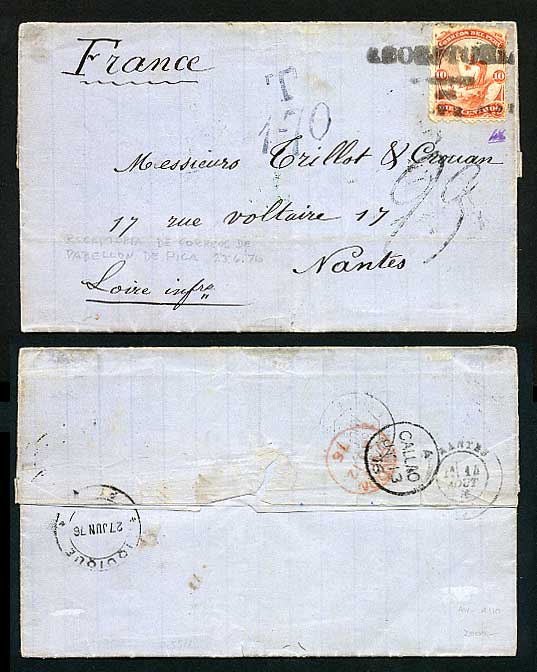 France
CORREOS DEL PERU
10 10
T
1·70
Messieurs Trillot & Crouan
93
17 rue Voltaire 17
RECEPTORIA DE CORREOS DE
PABELLON DE PICA 23.6.76
Nantes
Loire infre
A
CALLAO
76
NANTES
AOUT
27 JUN 76
IQUIQUE
2000.-